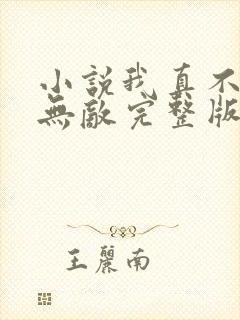 小說我真不
無敵完整版
王麗南